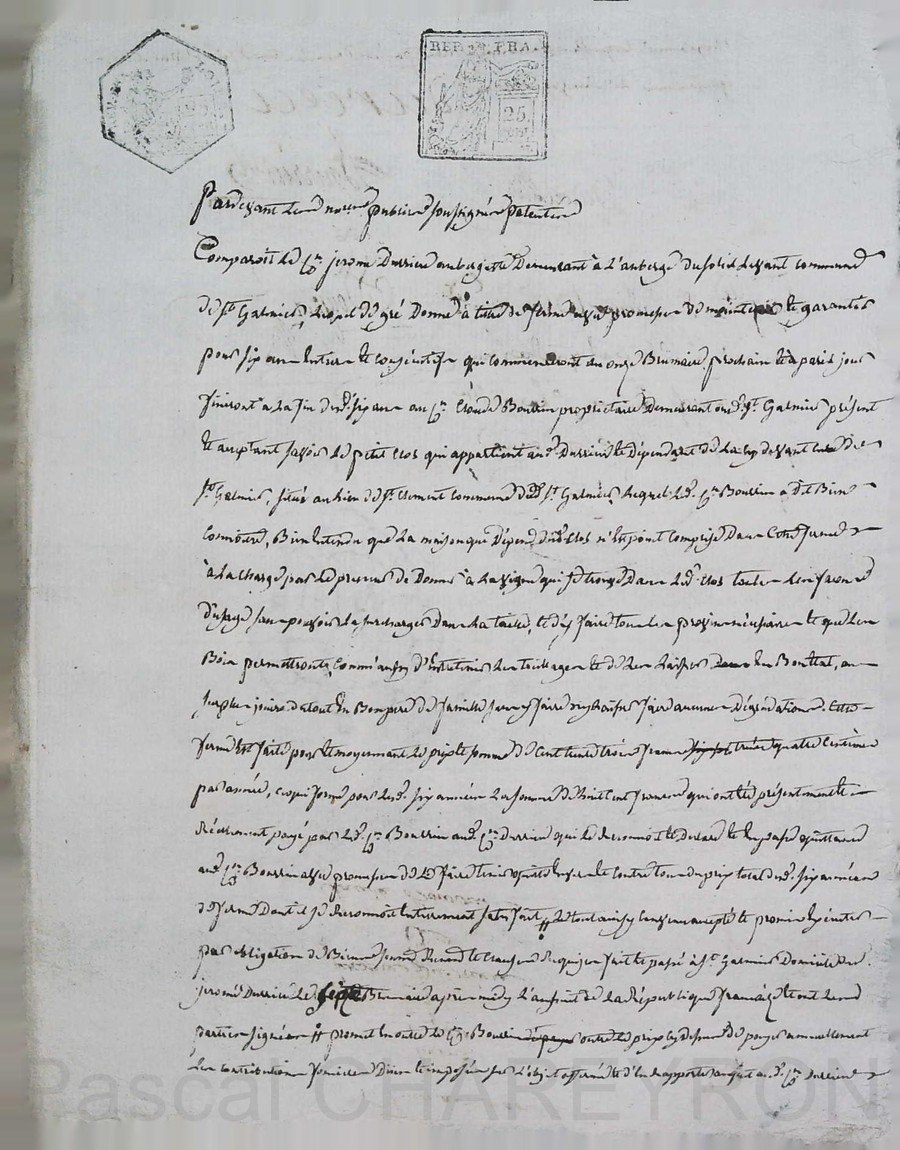 REP. FRA.
25
Pardevant les nores publics soussignés patentés
Comparoit le Cen jerome Durrieu aubergiste Demeurant à l'auberge du soleil levant commune
de St Galmier, lequel de gré Donne à titre de ferme avec promesse de maintenir et garantir
pour six ans entiers et consécutifs qui commenceront au onze Brumaire prochain et à pareil jour
finiront à la fin desd. six ans au Cen Claude Bourrin propriétaire Demeurant aud. St Galmier présent
et acceptant savoir le petit clos qui appartient aud. Durrieu et Dépendant de la cy devant cure de
St Galmier, situé au lieu de St Clement commune dud. St Galmier, lequel led. Cen Bourrin a dit Bien
Connoitre, Bien Entendu que la maison qui Dépend dud. clos n'est point Comprise Dans Cette ferme
à la charge par le preneur de Donner à la vigne qui se trouve Dans led. clos toutes les façons
D'usage sans pouvoir la surcharger Dans la taille, et d'y faire tous les provins nécessaires et que les
Bois permettront, Comm'aussy d'entretenir les et de les laisser en Bon Etat, au
surplus jouir du tout en Bon pere de famille sans y faire ny laisser faire aucunes Dégradations. Cette
ferme Est faite pour et moyennant le prix et somme de Cent trente trois francs trente quatre Centimes
par année, ce qui forme pour lesd. six années la somme de huit Cent francs qui ont été présentement et
réellement payé par led. Cen Bourrin aud. Cen Durrieu qui le reconnoit et Déclare et en passe quittance
aud. Cen Bourrin avec promesse de le faire tenir quitte envers et contre tous du prix total desd. six années
de ferme Dont il se reconnoit Entierement satisfait, # le tout ainsy Convenu accepté et promis Exécuter
par obligation de Biens Renon. et Clauses Requises fait et passé à St Galmier Domicile du
jerome Durrieu le sept Brumaire après midy l'an huit de la République française et ont les
parties signées # promet En outre led. Cen Bourrin outre le prix cy Dessus de payer annuellement
les contributions foncieres Dües et imposées sur l'objet affermé et d'en rapporter acquit aud. Cen Durrieu
Pascal CHAREYRON